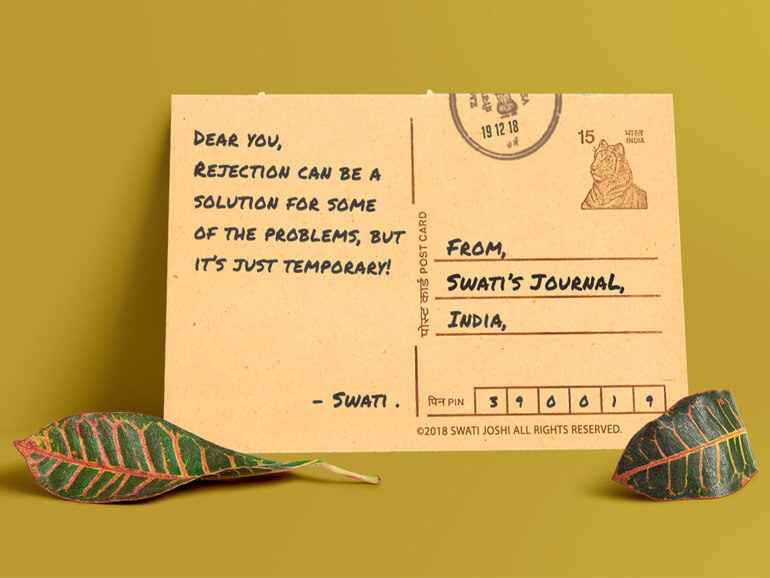 DEAR YOU,
REJECTION CAN BE A
SOLUTION FOR SOME
OF THE PROBLEMS, BUT
IT'S JUST TEMPORARY!
- SWATI .
पोस्ट कार्ड POST CARD
19 12 18
15 भारत
INDIA
FROM,
SWATI'S JOURNAL,
INDIA,
पिन PIN 3 9 0 0 1 9
©2018 SWATI JOSHI ALL RIGHTS RESERVED.